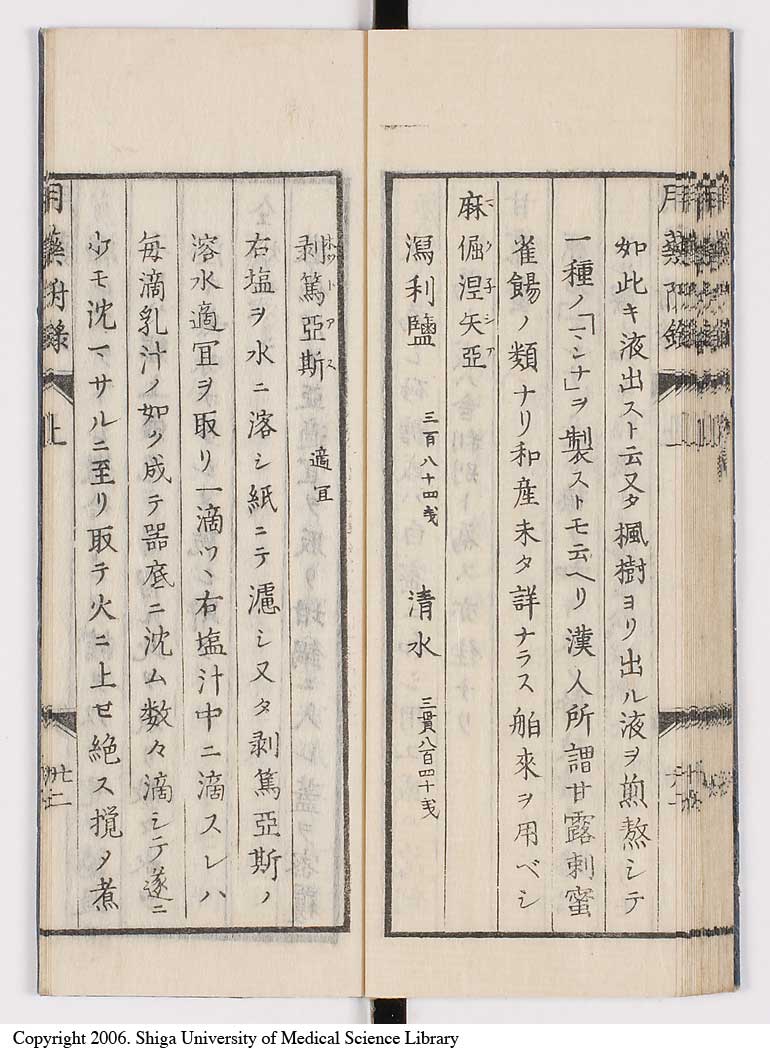 如此キ液出スト云又タ楓樹ヨリ出ル液ヲ煎熬シテ
一種ノ「マンナ」ヲ製ストモ云ヘリ漢人所謂甘露刺蜜
雀餳ノ類ナリ和産未タ詳ナラス舶來ヲ用ベシ
麻倔涅矢亞
瀉利鹽 三百八十四戔 清水 三貫八百四十戔
剥篤亞斯 適宜
右塩ヲ水ニ溶シ紙ニテ濾シ又タ剥篤亞斯ノ
溶水適冝ヲ取リ一滴ツヽ右塩汁中ニ滴スレハ
毎滴乳汁ノ如ク成テ器底ニ沈ム数々滴シテ遂ニ
少モ沈マサルニ至リ取テ火ニ上セ絶ス撹タ煮
用藥附録 上
Copyright 2006. Shiga University of Medical Science Library